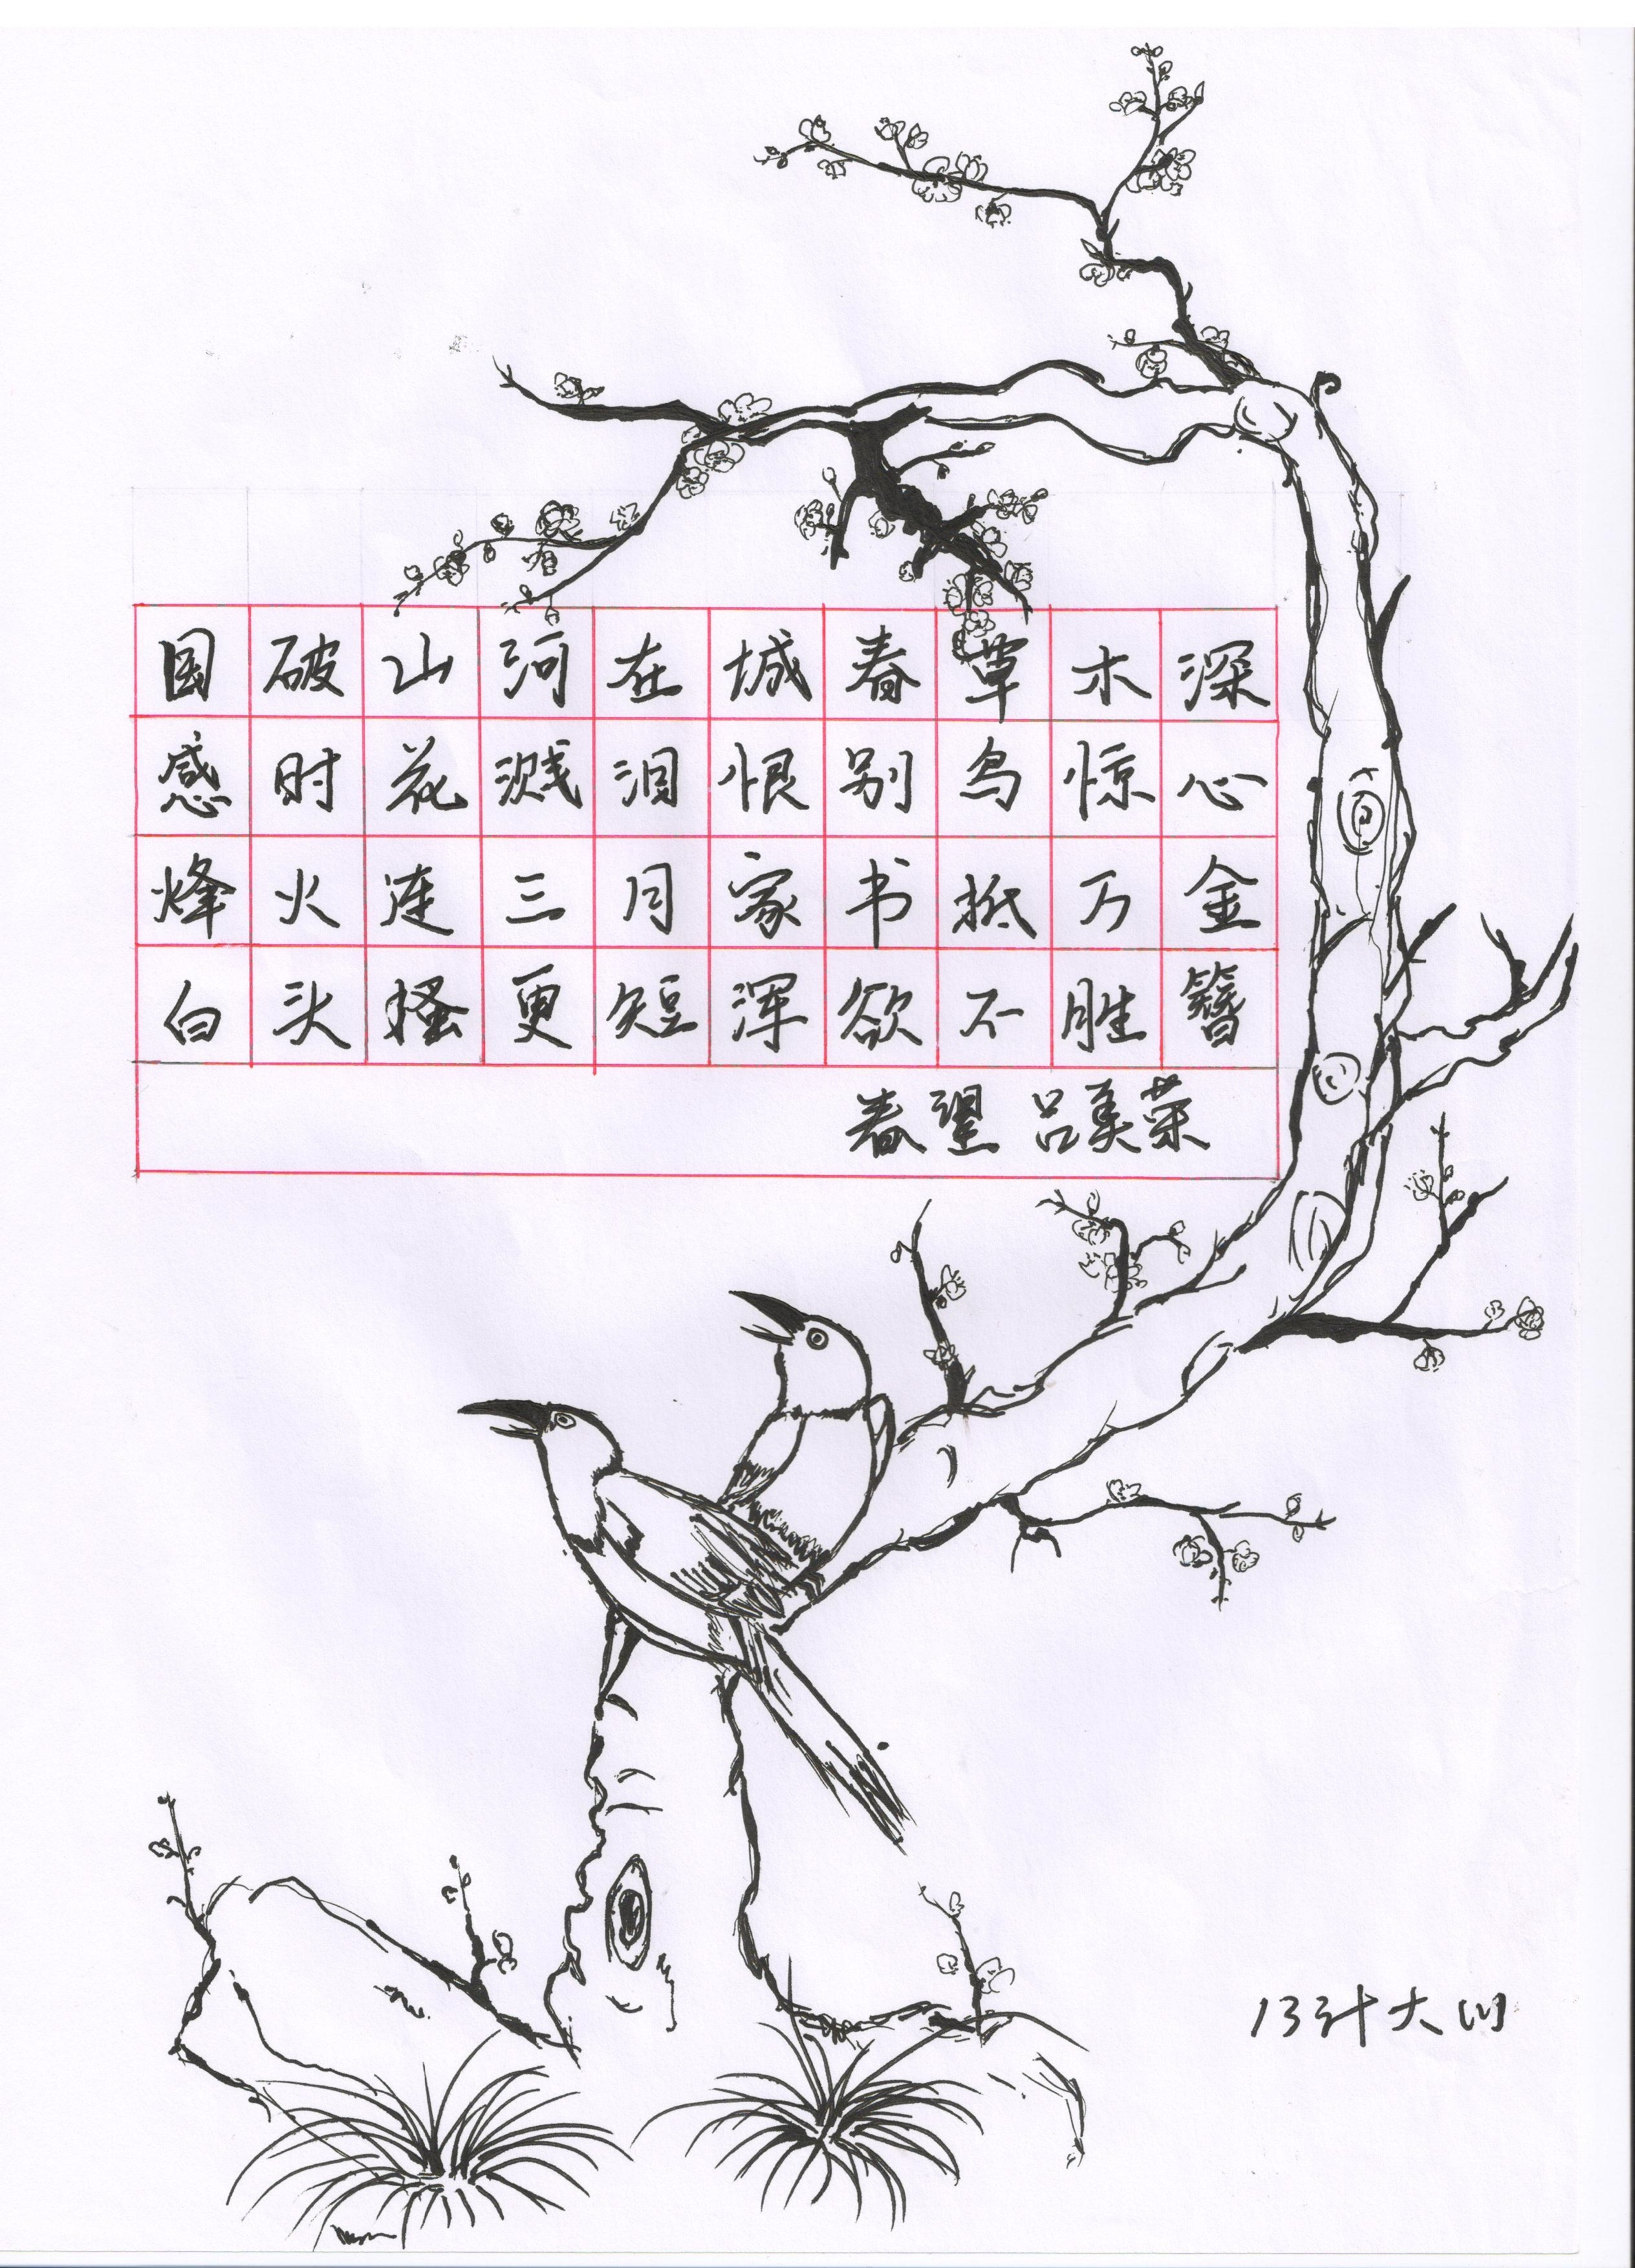 国破山河在城春草木深
感时花溅泪恨别鸟惊心
烽火连三月家书抵万金
白头搔更短浑欲不胜簪
春望 吕美荣
13计大(1)